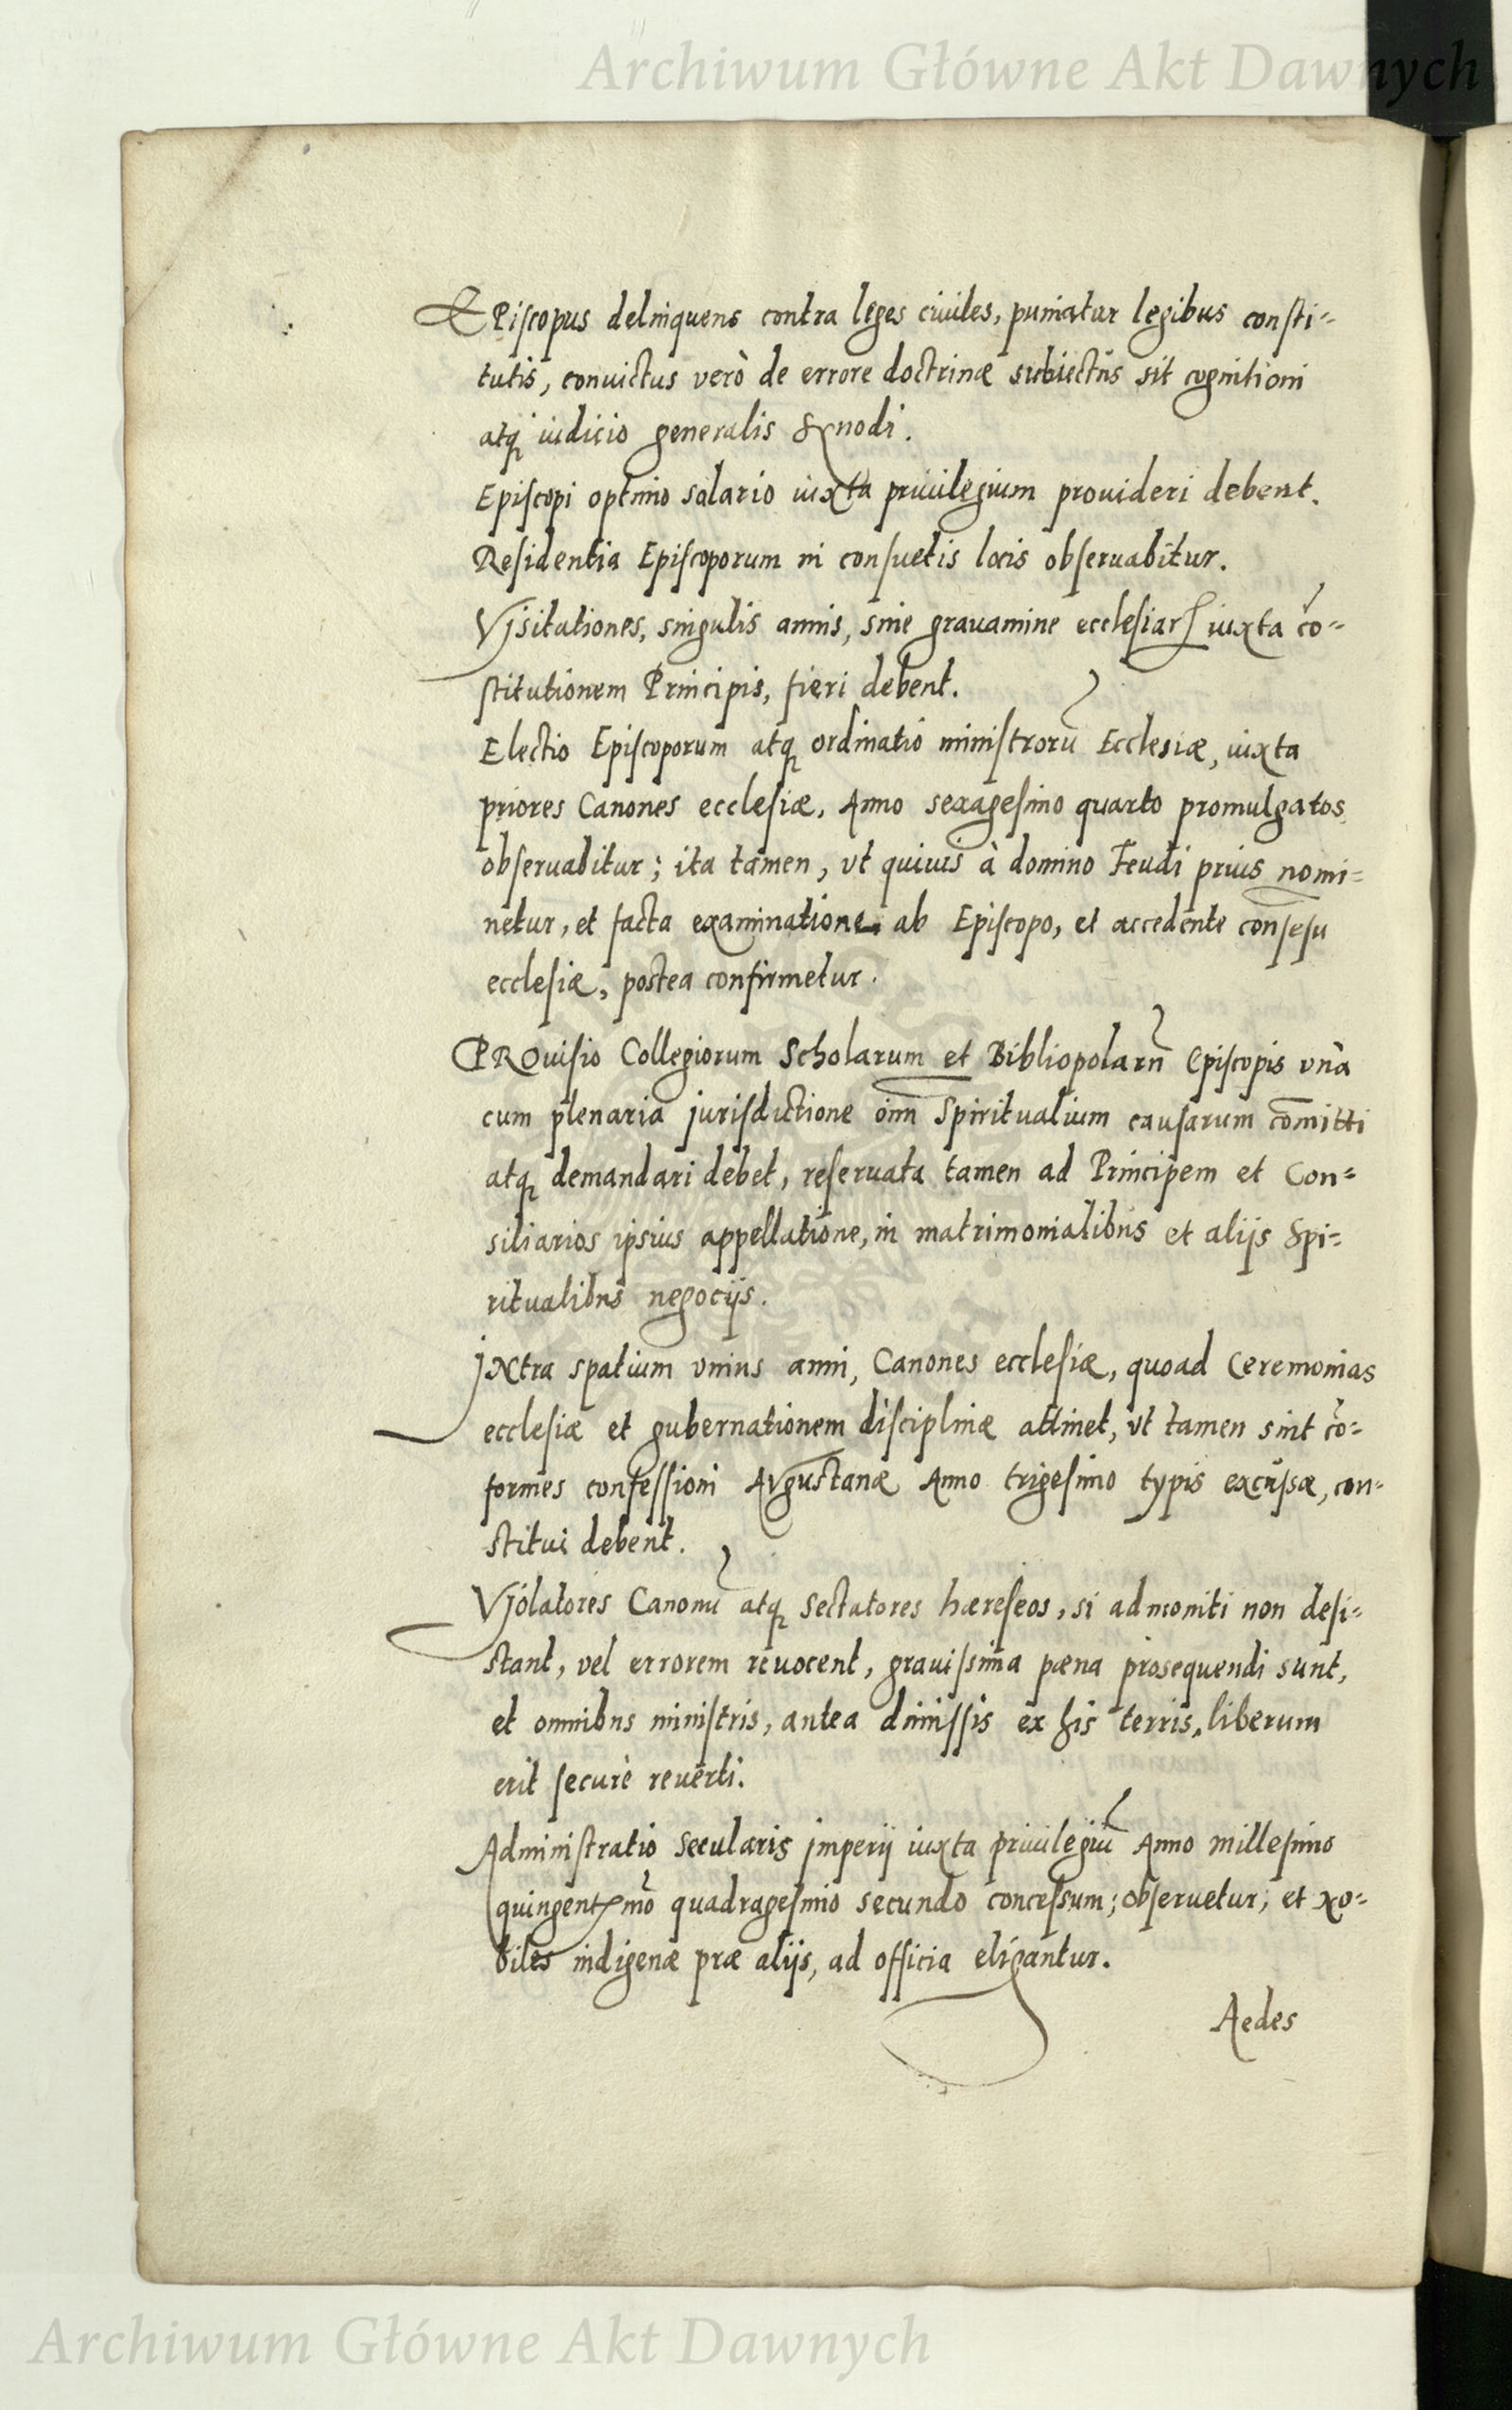 Archiwum Główne Akt Dawnych
EPiscopus delinquens contra leges ciuiles, puniatur legibus consti-
tutis, conuictus verò de errore doctrinæ subiectus sit cognitioni
atq iudicio generalis Synodi.
Episcopi optimo salario iuxta priuilegium prouideri debent.
Residentia Episcoporum in consuetis locis obseruabitur.
Vjsitationes, singulis annis, sine grauamine ecclesiar iuxta cō-
stitutionem Principis, fieri debent.
Electio Episcoporum atq ordinatio ministrorū Ecclesiæ, iuxta
priores Canones ecclesiæ, Anno sexagesimo quarto promulgatos
obseruabitur; ita tamen, vt quiuis à domino Feudi prius nomi-
netur, et facta examinatione ab Episcopo, et accedente consesu
ecclesiæ, postea confirmetur.
PROuisio Collegiorum Scholarum et Bibliopolarū Episcopis vnà
cum plenaria jurisdictione oīm Spiritualium causarum cōmitti
atq demandari debet, reseruata tamen ad Principem et Con-
siliarios ipsius appellatione, in matrimonialibus et alijs Spi-
ritualibus negocijs.
JNtra spatium vnius anni, Canones ecclesiæ, quoad Ceremonias
ecclesiæ et gubernationem disciplinæ attinet, vt tamen sint cō-
formes confessioni Avgustanæ Anno trigesimo typis excusæ, con-
stitui debent.
Vjolatores Canonū atq Sectatores hæreseos, si admoniti non desi-
stant, vel errorem reuocent, grauissima pæna prosequendi sunt,
et omnibus ministris, antea dimissis ex his terris, liberum
erit securè reuerti.
Administratio Secularis jmperij iuxta priuilegiū Anno millesimo
quingentmo quadragesimo secundo concessum; obseruetur, et No-
biles indigenæ præ alijs, ad officia eligantur.
Aedes
Archiwum Główne Akt Dawnych